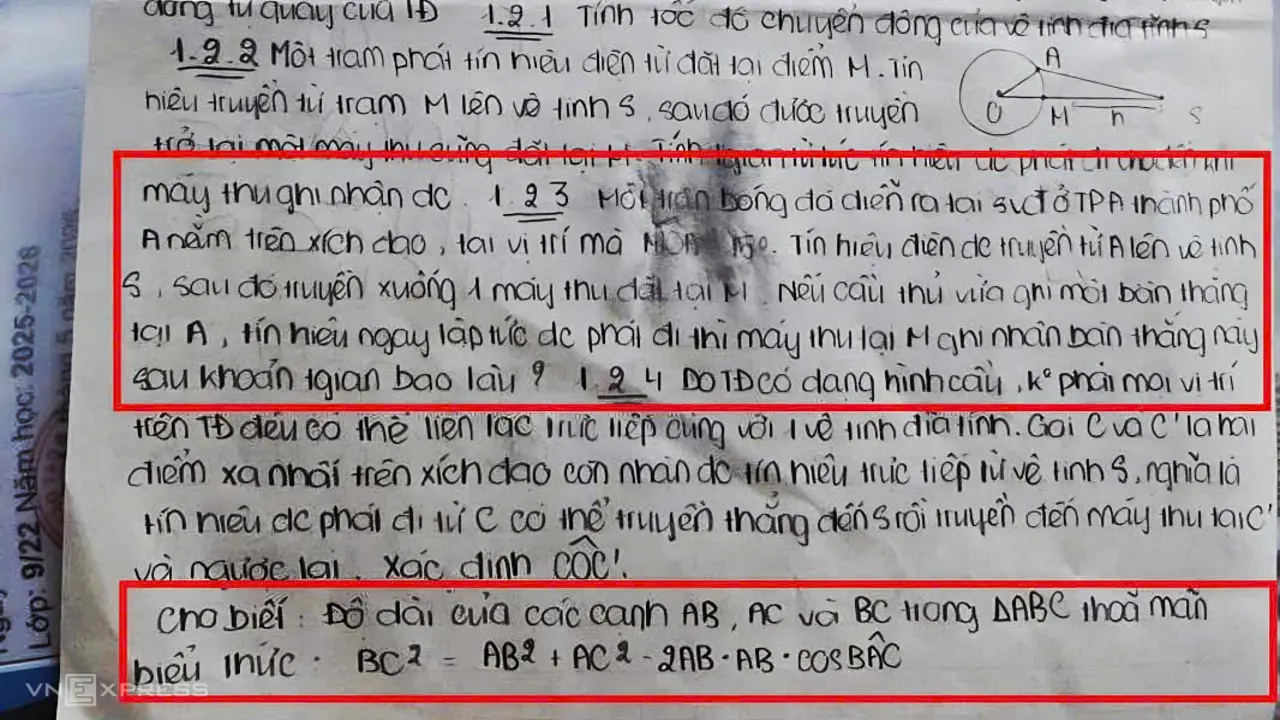 động tự quay của TĐ 1.2.1 Tính tốc độ chuyển động của vệ tinh địa tĩnh S
1.2.2 Một trạm phát tín hiệu điện từ đặt tại điểm M. Tín
hiệu truyền từ trạm M lên vệ tinh S, sau đó được truyền
trở lại một máy thu cũng đặt tại M. Tính tgian từ lúc tín hiệu dc phát đi cho đến khi
máy thu ghi nhận dc. 1.2.3 Một trận bóng đá diễn ra tại svđ ở TPA thành phố
A nằm trên xích đạo, tại vị trí mà . Tín hiệu điện dc truyền từ A lên vệ tinh
S, sau đó truyền xuống 1 máy thu đặt tại M. Nếu cầu thủ vừa ghi một bàn thắng
tại A, tín hiệu ngay lập tức dc phát đi thì máy thu tại M ghi nhận bàn thắng này
sau khoản tgian bao lâu? 1.2.4 Do TĐ có dạng hình cầu, k° phải mọi vị trí
trên TĐ đều có thể liên lạc trực tiếp cùng với 1 vệ tinh địa tĩnh. Gọi C và C' là hai
điểm xa nhất trên xích đạo còn nhận dc tín hiệu trực tiếp từ vệ tinh S, nghĩa là
tín hiệu dc phát đi từ C có thể truyền thẳng đến S rồi truyền đến máy thu tại C'
và ngược lại. Xác định CÔC'.
Cho biết: Độ dài của các cạnh AB, AC và BC trong ΔABC thoả mãn
biểu thức. BC² = AB² + AC² - 2AB.AB.cosBÂC
A
O
M
h
S
Lớp: 9/22 Năm học: 2025-2026
VNEXPRESS